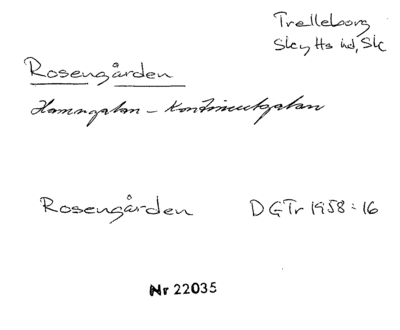 Trelleborg
Skytts hd, Sk
Rosengården
Hamngatan – Kontinentgatan
Rosengården DGTr 1958:16
Nr 22035